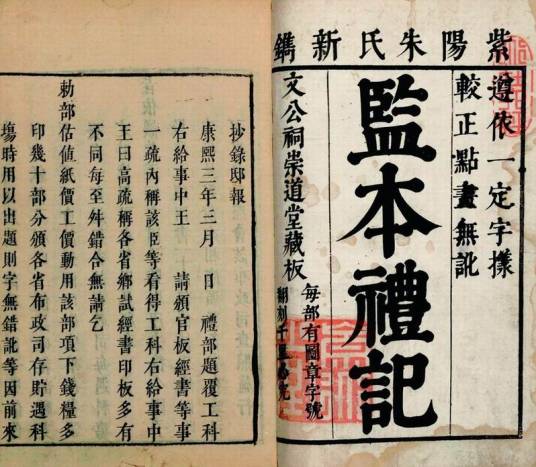 紫陽朱氏新鐫
遵依一定字樣
較正點畫無訛
監本禮記
每部有圖章字號
翻刻千里必究
文公祠崇道堂藏板
抄錄邸報
康熙三年三月　日　禮部題覆工科
右給事中王　請頒官板經書等事
一疏內稱該臣等看得工科右給事中
王曰高疏稱各省鄉試經書印板多有
不同每至舛錯合無請乞
勅部估值紙價工價動用該部項下錢糧多
印幾十部分頒各省布政司存貯遇科
塲時用以出題則字無錯訛等因前來